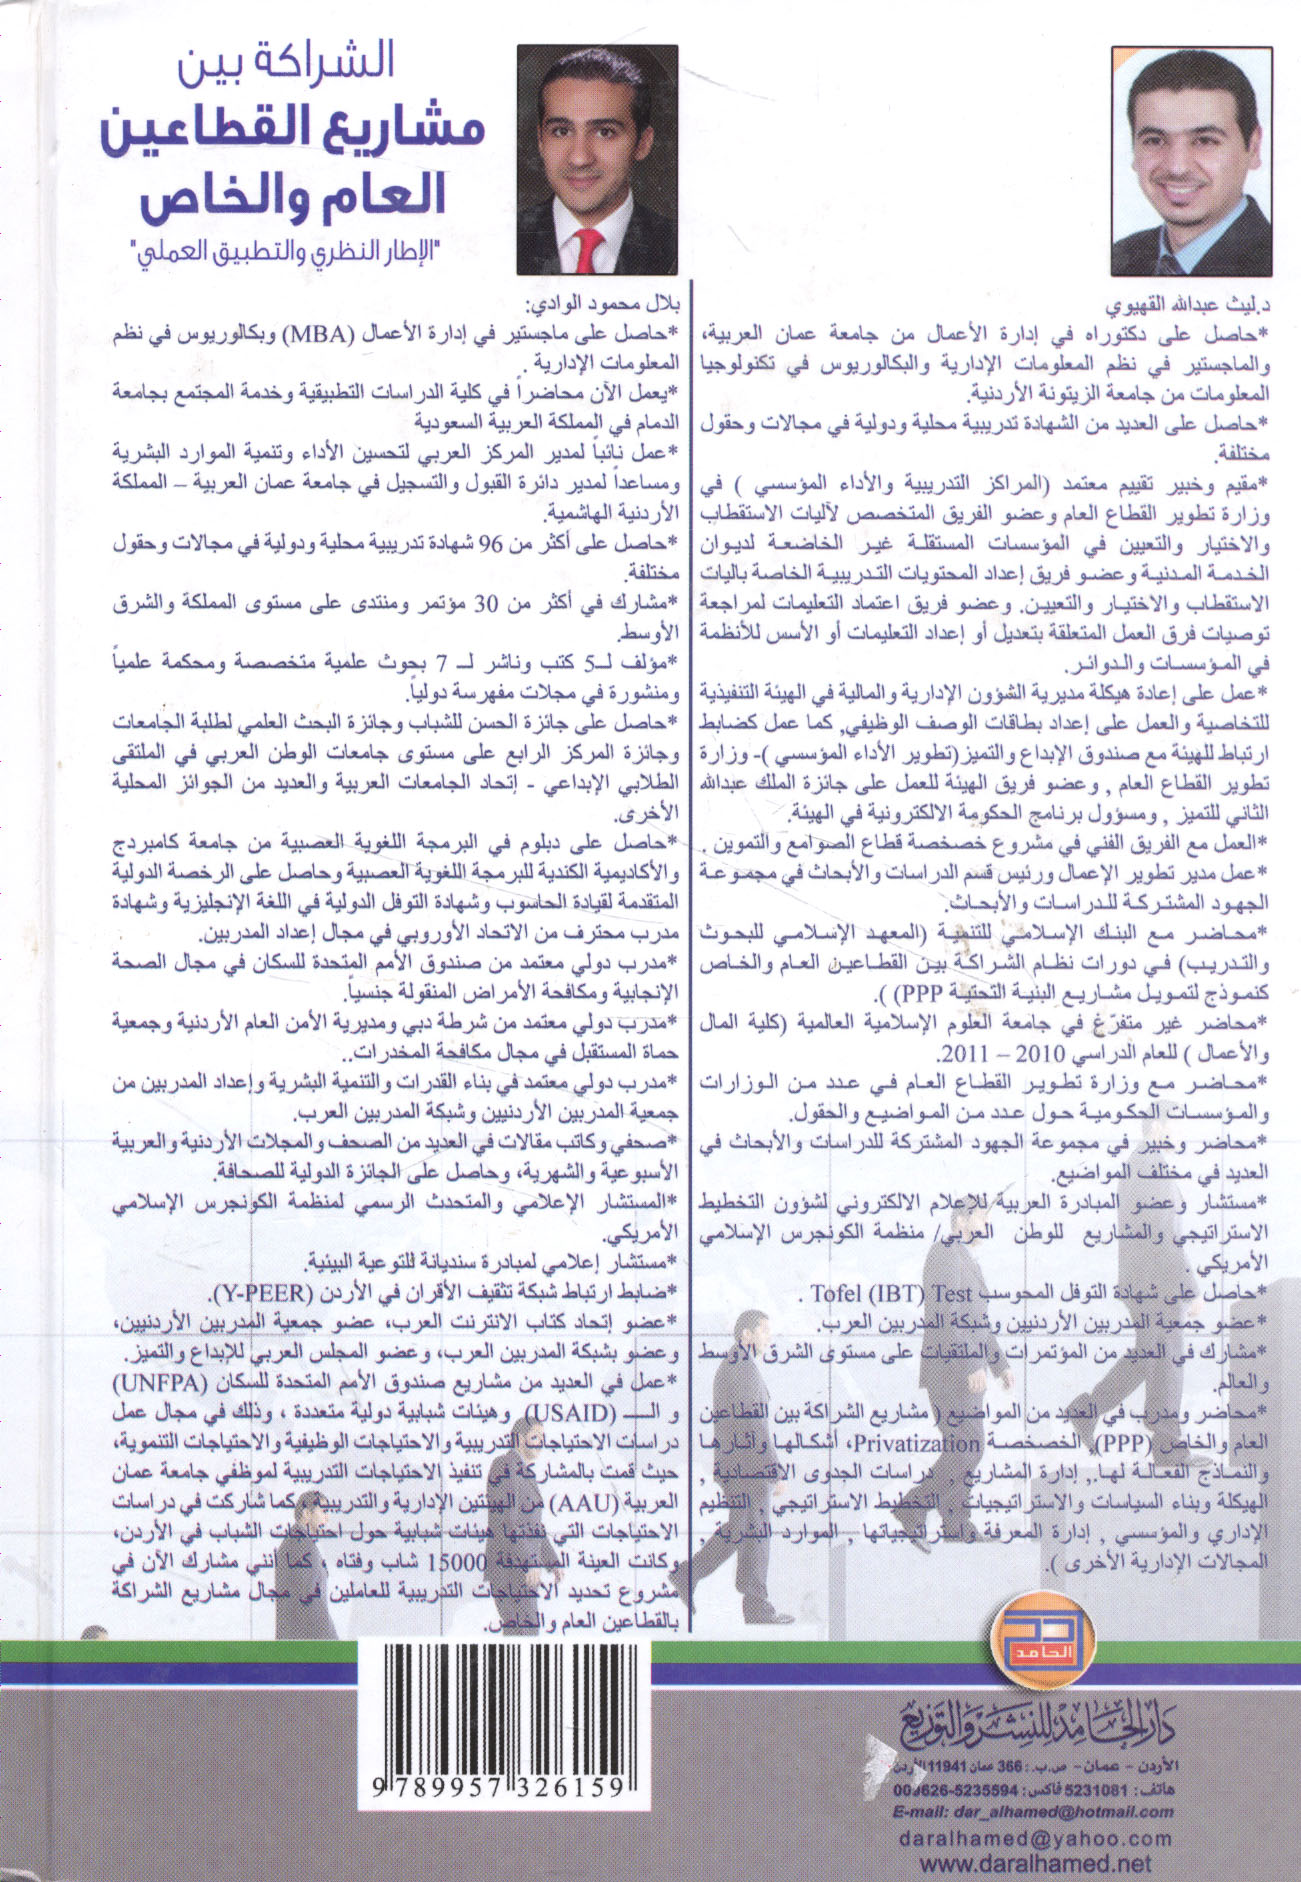 الشراكة بين
مشاريع القطاعين
العام والخاص
"الإطار النظري والتطبيق العملي"
د.ليث عبدالله القهيوي
*حاصل على دكتوراه في إدارة الأعمال من جامعة عمان العربية،
والماجستير في نظم المعلومات الإدارية والبكالوريوس في تكنولوجيا
المعلومات من جامعة الزيتونة الأردنية.
*حاصل على العديد من الشهادة تدريبية محلية ودولية في مجالات وحقول
مختلفة.
*مقيم وخبير تقييم معتمد (المراكز التدريبية والأداء المؤسسي ) في
وزارة تطوير القطاع العام وعضو الفريق المتخصص لآليات الاستقطاب
والاختيار والتعيين في المؤسسات المستقلة غير الخاضعة لديوان
الخدمة المدنية وعضو فريق إعداد المحتويات التدريبية الخاصة باليات
الاستقطاب والاختيار والتعيين. وعضو فريق اعتماد التعليمات لمراجعة
توصيات فرق العمل المتعلقة بتعديل أو إعداد التعليمات أو الأسس للأنظمة
في المؤسسات والدوائر.
*عمل على إعادة هيكلة مديرية الشؤون الإدارية والمالية في الهيئة التنفيذية
للتخاصية والعمل على إعداد بطاقات الوصف الوظيفي, كما عمل كضابط
ارتباط للهيئة مع صندوق الإبداع والتميز(تطوير الأداء المؤسسي )- وزارة
تطوير القطاع العام , وعضو فريق الهيئة للعمل على جائزة الملك عبدالله
الثاني للتميز , ومسؤول برنامج الحكومة الالكترونية في الهيئة.
*العمل مع الفريق الفني في مشروع خصخصة قطاع الصوامع والتموين .
*عمل مدير تطوير الإعمال ورئيس قسم الدراسات والأبحاث في مجموعة
الجهود المشتركة للدراسات والأبحاث.
*محاضر مع البنك الإسلامي للتنمية (المعهد الإسلامي للبحوث
والتدريب) في دورات نظام الشراكة بين القطاعين العام والخاص
كنموذج لتمويل مشاريع البنية التحتية PPP) ).
*محاضر غير متفرّغ في جامعة العلوم الإسلامية العالمية (كلية المال
والأعمال ) للعام الدراسي 2010 – 2011.
*محاضر مع وزارة تطوير القطاع العام في عدد من الوزارات
والمؤسسات الحكومية حول عدد من المواضيع والحقول.
*محاضر وخبير في مجموعة الجهود المشتركة للدراسات والأبحاث في
العديد في مختلف المواضيع.
*مستشار وعضو المبادرة العربية للإعلام الالكتروني لشؤون التخطيط
الاستراتيجي والمشاريع للوطن العربي/ منظمة الكونجرس الإسلامي
الأمريكي .
*حاصل على شهادة التوفل المحوسب Tofel (IBT) Test .
*عضو جمعية المدربين الأردنيين وشبكة المدربين العرب.
*مشارك في العديد من المؤتمرات والملتقيات على مستوى الشرق الأوسط
والعالم.
*محاضر ومدرب في العديد من المواضيع ( مشاريع الشراكة بين القطاعين
العام والخاص (PPP), الخصخصة Privatization، أشكالها وآثارها
والنماذج الفعالة لها., إدارة المشاريع , دراسات الجدوى الاقتصادية ,
الهيكلة وبناء السياسات والاستراتيجيات , التخطيط الاستراتيجي , التنظيم
الإداري والمؤسسي , إدارة المعرفة واستراتيجياتها , الموارد البشرية ,
المجالات الإدارية الأخرى ).
بلال محمود الوادي:
*حاصل على ماجستير في إدارة الأعمال (MBA) وبكالوريوس في نظم
المعلومات الإدارية .
*يعمل الآن محاضراً في كلية الدراسات التطبيقية وخدمة المجتمع بجامعة
الدمام في المملكة العربية السعودية
*عمل نائباً لمدير المركز العربي لتحسين الأداء وتنمية الموارد البشرية
ومساعداً لمدير دائرة القبول والتسجيل في جامعة عمان العربية – المملكة
الأردنية الهاشمية.
*حاصل على أكثر من 96 شهادة تدريبية محلية ودولية في مجالات وحقول
مختلفة.
*مشارك في أكثر من 30 مؤتمر ومنتدى على مستوى المملكة والشرق
الأوسط.
*مؤلف لـ5 كتب وناشر لـ 7 بحوث علمية متخصصة ومحكمة علمياً
ومنشورة في مجلات مفهرسة دولياً.
*حاصل على جائزة الحسن للشباب وجائزة البحث العلمي لطلبة الجامعات
وجائزة المركز الرابع على مستوى جامعات الوطن العربي في الملتقى
الطلابي الإبداعي - إتحاد الجامعات العربية والعديد من الجوائز المحلية
الأخرى.
*حاصل على دبلوم في البرمجة اللغوية العصبية من جامعة كامبردج
والأكاديمية الكندية للبرمجة اللغوية العصبية وحاصل على الرخصة الدولية
المتقدمة لقيادة الحاسوب وشهادة التوفل الدولية في اللغة الإنجليزية وشهادة
مدرب محترف من الاتحاد الأوروبي في مجال إعداد المدربين.
*مدرب دولي معتمد من صندوق الأمم المتحدة للسكان في مجال الصحة
الإنجابية ومكافحة الأمراض المنقولة جنسياً.
*مدرب دولي معتمد من شرطة دبي ومديرية الأمن العام الأردنية وجمعية
حماة المستقبل في مجال مكافحة المخدرات..
*مدرب دولي معتمد في بناء القدرات والتنمية البشرية وإعداد المدربين من
جمعية المدربين الأردنيين وشبكة المدربين العرب.
*صحفي وكاتب مقالات في العديد من الصحف والمجلات الأردنية والعربية
الأسبوعية والشهرية، وحاصل على الجائزة الدولية للصحافة.
*المستشار الإعلامي والمتحدث الرسمي لمنظمة الكونجرس الإسلامي
الأمريكي.
*مستشار إعلامي لمبادرة سنديانة للتوعية البيئية.
*ضابط ارتباط شبكة تثقيف الأقران في الأردن (Y-PEER).
*عضو إتحاد كتاب الانترنت العرب، عضو جمعية المدربين الأردنيين،
وعضو بشبكة المدربين العرب، وعضو المجلس العربي للإبداع والتميز.
*عمل في العديد من مشاريع صندوق الأمم المتحدة للسكان (UNFPA)
و الــ (USAID) وهيئات شبابية دولية متعددة ، وذلك في مجال عمل
دراسات الاحتياجات التدريبية والاحتياجات الوظيفية والاحتياجات التنموية،
حيث قمت بالمشاركة في تنفيذ الاحتياجات التدريبية لموظفي جامعة عمان
العربية (AAU) من الهيئتين الإدارية والتدريبية وكما شاركت في دراسات
الاحتياجات التي نفذتها هيئات شبابية حول احتياجات الشباب في الأردن،
وكانت العينة المستهدفة 15000 شاب وفتاه ، كما أنني مشارك الآن في
مشروع تحديد الاحتياجات التدريبية للعاملين في مجال مشاريع الشراكة
بالقطاعين العام والخاص.
9 789957 326159
الحامد
دار الحامد للنشر والتوزيع
الأردن - عمان - ص.ب: 366 عمان 11941 الأردن
هاتف: 5231081 فاكس: 5235594-009626
E-mail: dar_alhamed@hotmail.com
daralhamed@yahoo.com
www.daralhamed.net